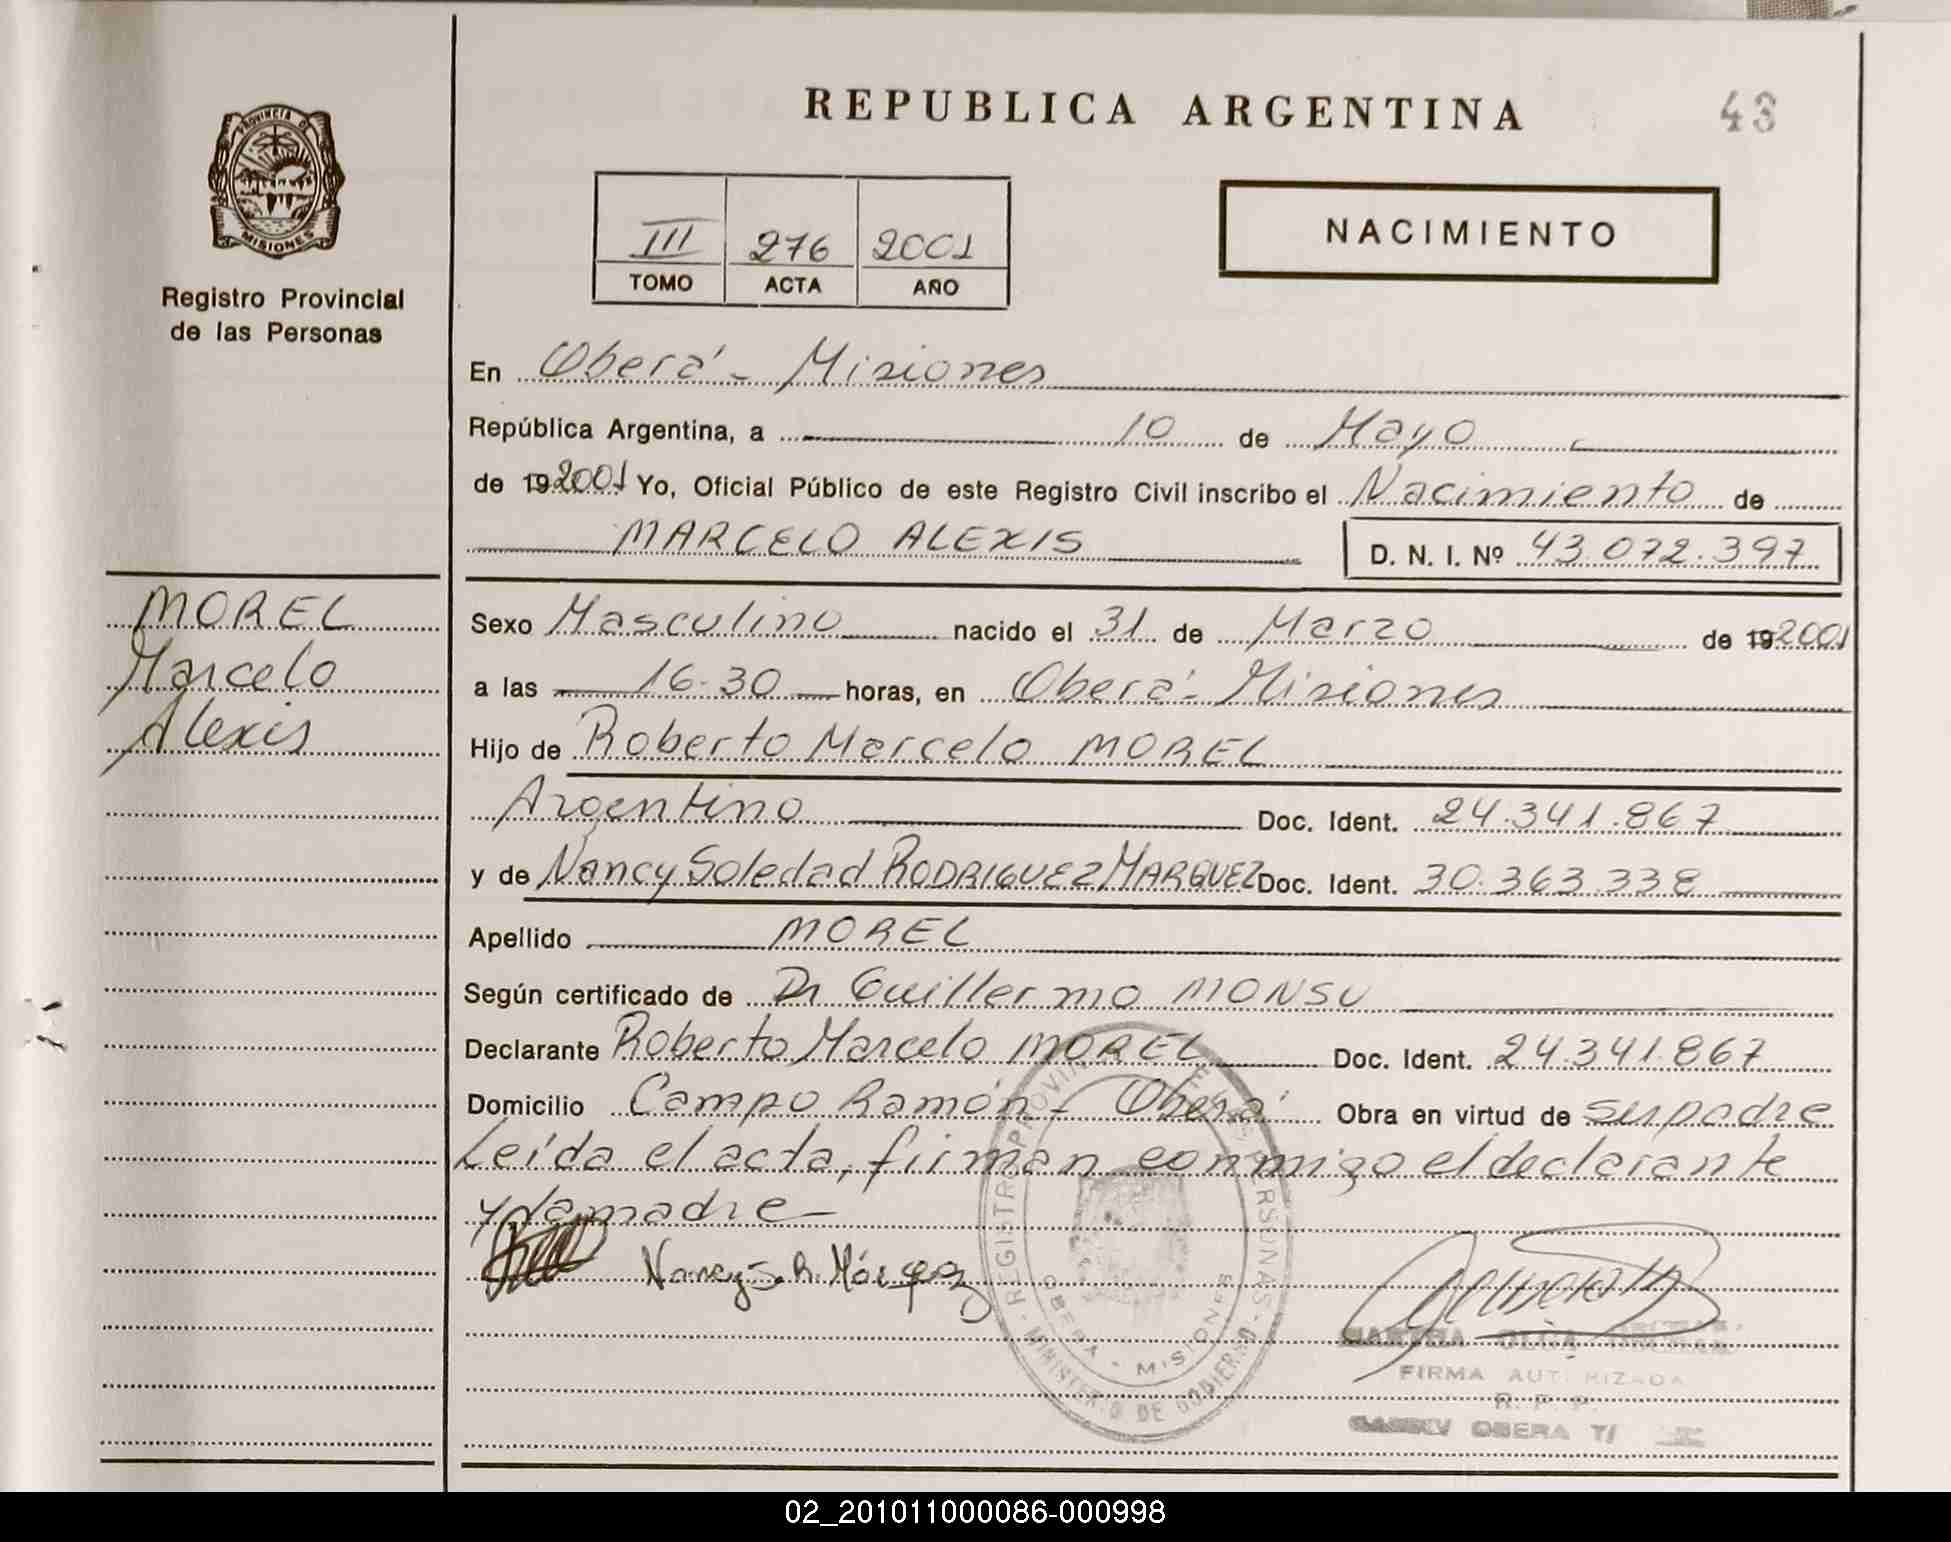 REPUBLICA ARGENTINA
43
PROVINCIA DE
MISIONES
Registro Provincial
de las Personas
III 276 2001
TOMO ACTA AÑO
NACIMIENTO
En Oberá - Misiones
República Argentina, a 10 de Mayo
de 19 2001 Yo, Oficial Público de este Registro Civil inscribo el Nacimiento de
MARCELO ALEXIS D. N. I. Nº 43.072.397
MOREL
Marcelo
Alexis
Sexo Masculino nacido el 31 de Marzo de 19 2001
a las 16.30 horas, en Oberá - Misiones
Hijo de Roberto Marcelo MOREL
Argentino Doc. Ident. 24.341.867
y de Nancy Soledad RODRIGUEZ MARQUEZ Doc. Ident. 30.363.338
Apellido MOREL
Según certificado de Dr Guillermo MONSU
Declarante Roberto Marcelo MOREL Doc. Ident. 24.341.867
Domicilio Campo Ramón - Oberá Obra en virtud de ser padre
Leída el acta, firman conmigo el declarante
y la madre -
Nancy S. R. Márquez
REGISTRO PROVINCIAL DE LAS PERSONAS - MINISTERIO DE GOBIERNO -
OBERA - MISIONES
MARTHA OLGA
FIRMA AUTORIZADA
R. P. P.
OBERA
02_201011000086-000998